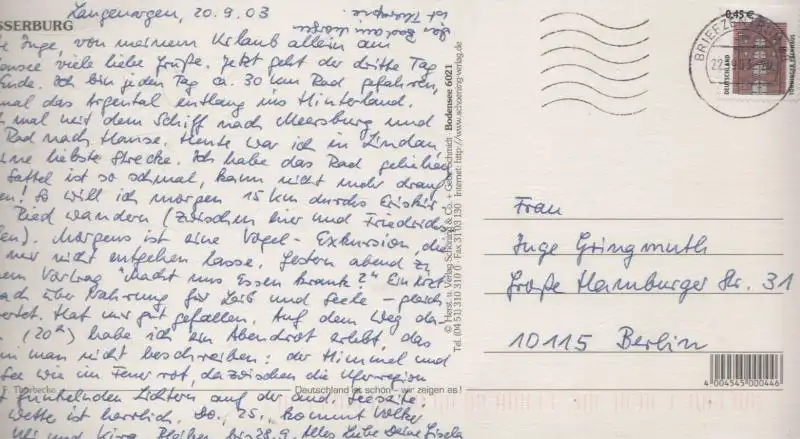 Langenargen, 20.9.03
SSERBURG
e Inge, von meinem Urlaub allein am
ensee viele liebe Grüße. Jetzt geht der dritte Tag
Ende. Ich bin jeden Tag ca. 30 km Rad gefahren,
mal das Argental entlang ins Hinterland.
h mal mit dem Schiff nach Meersburg und
Rad nach Hause. Heute war ich in Lindau
ine liebste Strecke. Ich habe das Rad geliehen
Sattel ist so schmal, kann nicht mehr drauf
en! So will ich morgen 15 km durchs Eriskir-
Ried wandern (zwischen hier und Friedrichs
fen). Morgens ist eine Vogel-Exkursion, die
mir nicht entgehen lasse. Gestern abend zu
em Vortrag "Macht uns Essen krank?" Ein Arzt
ach über Nahrung für Leib und Seele – gleich
ertet. Hat mir gut gefallen. Auf dem Weg da
(20h) habe ich ein Abendrot erlebt, das
nn man nicht beschreiben: der Himmel und
See wie im Feuer rot, dazwischen die Uferregion
t funkelnden Lichtern auf der and. Seeseite
Wette ist herrlich. Do., 25., kommt Volke
bis 28.9. Alles Liebe Deine Gisela
F. Thorbecke
Deutschland ist schön - wir zeigen es!
© Herst. u. Verlag Schöning & Co. + Gebr. Schmidt · Bodensee 6021
Tel. (04 51) 310 310 0 · Fax 31 03 130 Internet: http://www.schoening-verlag.de
BRIEFZEN
0,45 €
DEUTSCHLAND
Frau
Inge Gringmuth
Große Hamburger Str. 31
10115 Berlin
4 004545 000446